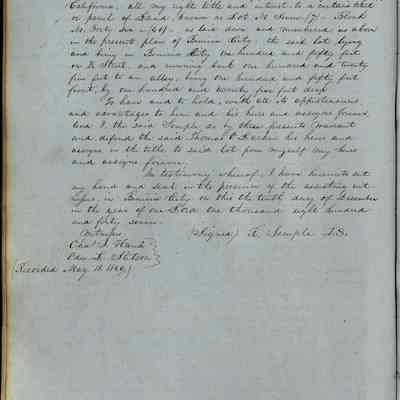 California, all my right title and interest to a certain tract
or parcel of Land, known as Lot No
as laid down and numbered as above
in the present plan of Benicia City, the said lot, lying
and being in Benicia City, one hundred and fifty feet
on Street, and running back one hundred and twenty
five feet to an alley, being one hundred and fifty feet
front, by one hundred and twenty five feet deep
To have and to hold, with all its appurtenances,
and advantages to him and his heirs and assigns forever
And I, the said Semple do by these presents covenant
and defend the said Thomas O. Larkin his heirs and
assigns in the title to said lot from myself my heirs
and assigns forever.
In testimony whereof, I have hereunto set
my hand and seal in the presence of the assisting wit-
nesses, in Benicia City on this the tenth day of December
in the year of our Lord one thousand eight hundred
and forty seven
Witness
(Signed) R. Semple L.S.
Chas. S.
Edw. H.
(Recorded May 18